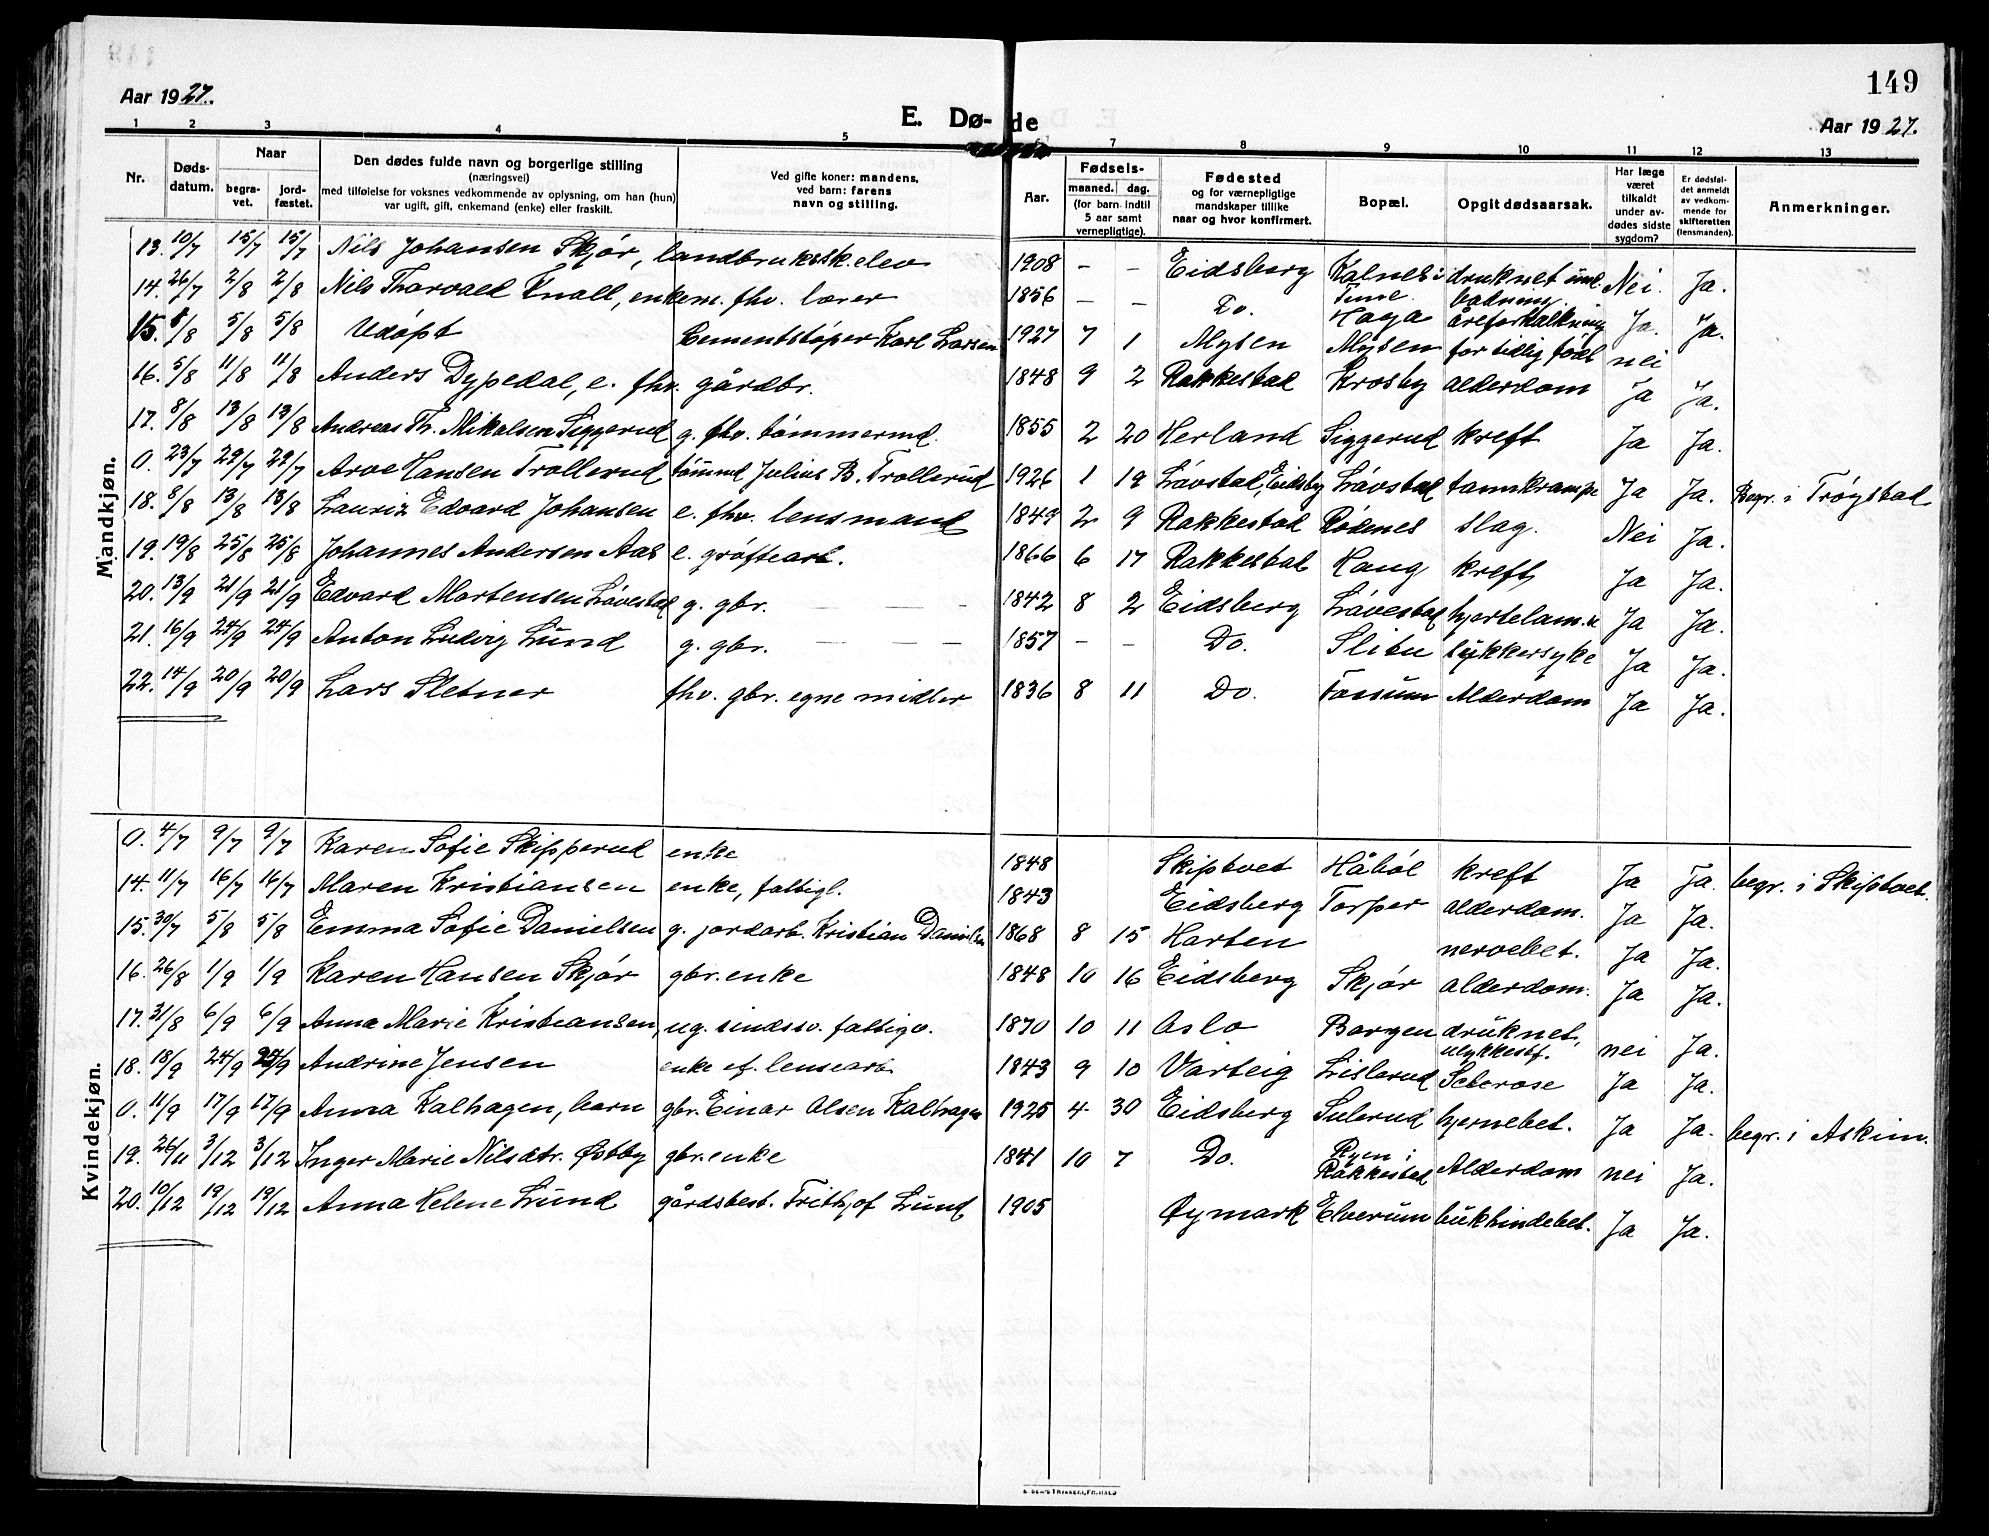 149
Aar 1927.
E. Dø-de
Aar 1927.
1 2 3 4 5 7 8 9 10 11 12 13
Nr.
Døds-datum.
Naar
begra-vet.
jord-fæstet.
Den dødes fulde navn og borgerlige stilling
(næringsvei)
med tilføielse for voksnes vedkommende av oplysning, om han (hun)
var ugift, gift, enkemand (enke) eller fraskilt.
Ved gifte koner: mandens,
ved barn: farens
navn og stilling.
Aar.
Fødsels-
maaned. dag.
(for barn indtil
5 aar samt
vernepligtige).
Fødested
og for værnepligtige
mandskaper tillike
naar og hvor konfirmert.
Bopæl.
Opgit dødsaarsak.
Har læge
været
tilkaldt
under av-
dødes sidste
sygdom?
Er dødsfal-
det anmeldt
av vedkom-
mende for
skifteretten
(lensmanden).
Anmerkninger.
Mandkjøn.
13. 10/7 15/7 15/7 Nils Johansen Skjør, landbruksk. elev 1908 - - Eidsberg Kalnes i Tune druknet und. badning. Nei. Ja.
14. 26/7 2/8 2/8 Nils Thorvald Knall, enkem. fhv. lærer 1856 - - Do. Haga åreforkalkning Ja. Ja.
15. 8/8 5/8 5/8 Udøpt Cementstøper Karl Larsen 1927 7 1 Mysen Mysen for tidlig født nei
16. 5/8 11/8 11/8 Anders Dypedal, e. fhv. gårdbr. 1848 9 2 Rakkestad Krosby alderdom Ja Ja.
17. 8/8 13/8 13/8 Andreas Th. Mikalsen Siggerud g. fhv. tømmermd. 1855 2 20 Herland Siggerud kreft Ja Ja.
0. 23/7 29/7 29/7 Arve Hansen Trollerud tømmd Julius B. Trollerud 1926 1 19 Låvstad, Eidsby Låvstad tannkrampe Ja Ja. Begr. i Trøgstad
18. 8/8 13/8 13/8 Lauriz Edvard Johansen e. fhv. lensmand 1849 2 9 Rakkestad Rødenes slag. Nei Ja.
19. 19/8 25/8 25/8 Johannes Andersen Aas e. grøftearb. 1866 6 17 Rakkestad Haug kreft Ja Ja.
20. 13/9 21/9 21/9 Edvard Martensen Låvestad g. gbr. 1842 8 2 Eidsberg Låvestad hjertelam.. Ja Ja.
21. 16/9 24/9 24/9 Anton Ludvig Lund g. gbr. 1857 - - Do. Slitu sukkersyke Ja Ja.
22. 14/9 20/9 20/9 Lars Sletner fhv. gbr. egne midler 1836 8 11 Do. Fossum Alderdom Ja Ja.
Kvindekjøn.
0. 4/7 9/7 9/7 Karen Sofie Skipperud enke 1848 Skiptvet Håbøl kreft Ja Ja. begr. i Skiptvet.
14. 11/7 16/7 16/7 Maren Kristiansen enke, fattigl. 1843 Eidsberg Torper alderdom. Ja Ja.
15. 30/7 5/8 5/8 Emma Sofie Danielsen g. jordarb. Kristian Danielsen 1868 8 15 Harten nervebet. Ja Ja.
16. 26/8 1/9 1/9 Karen Hansen Skjør gbr. enke 1848 10 16 Eidsberg Skjør alderdom. Ja Ja.
17. 31/8 6/9 6/9 Anna Marie Kristiansen, ug. sindssv. fattigv. 1870 10 11 Oslo Borgen druknet, ulykkestf. nei Ja.
18. 18/9 24/9 24/9 Andrine Jensen enke ef. lensearb. 1843 9 10 Varteig Lislerud Scterose Ja Ja.
0. 11/9 17/9 17/9 Anna Kalhagen, barn gbr. Einar Olsen Kalhagen 1925 4 30 Eidsberg Sulerud hjernebet. Ja Ja. begr. i Askim.
19. 26/11 3/12 3/12 Inger Marie Nilsdtr. Østby gbr. enke 1841 10 7 Do. Ryen i Rakkestad Alderdom nei Ja.
20. 10/12 19/12 19/12 Anna Helene Lund gårdsbest. Frithjof Lund 1905 Øymark Elverum bukhindebet. Ja Ja.